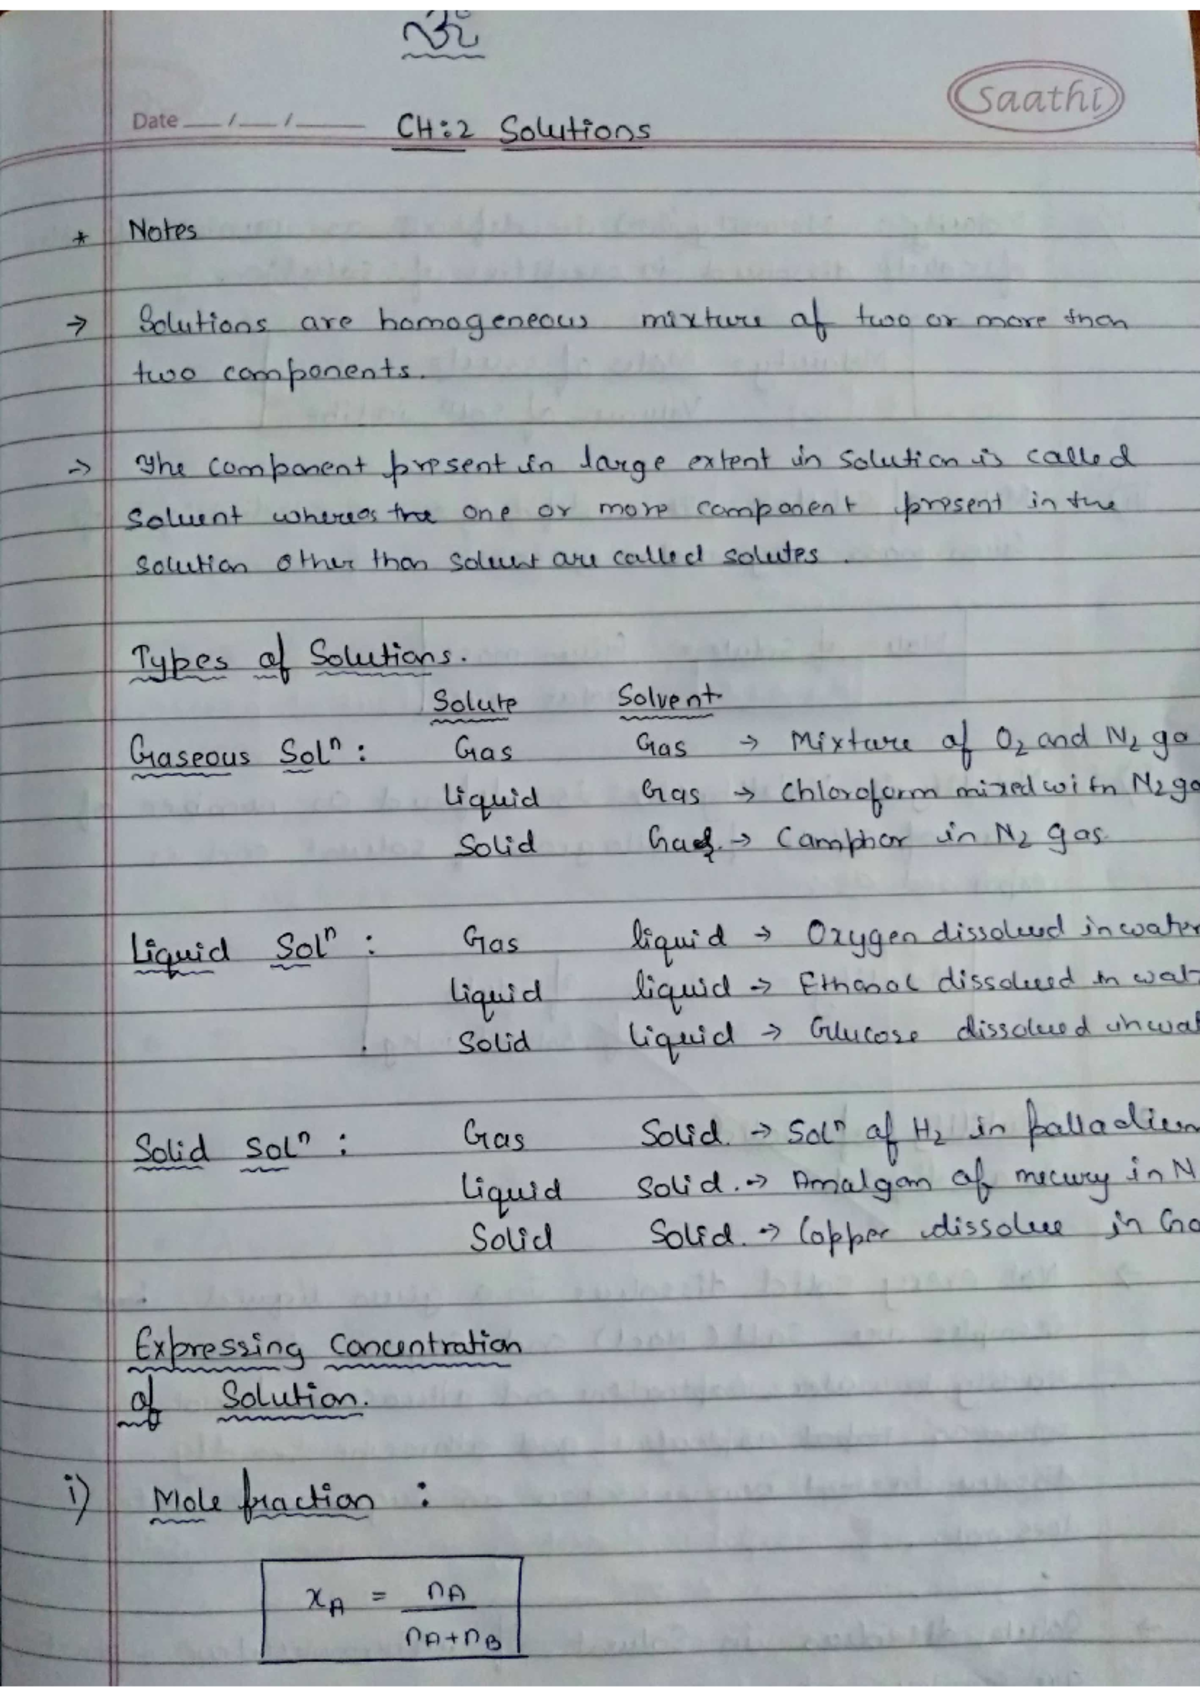 ૐ
Saathi
Date __/__/____ CH:2 Solutions
* Notes
→ Solutions are homogeneous mixture of two or more than
two components.
→ The component present in large extent in solution is called
solvent whereas the one or more component present in the
solution other than solvent are called solutes.
Types of Solutions.
Solute Solvent
Gaseous Solⁿ: Gas Gas → Mixture of O₂ and N₂ ga
liquid Gas → Chloroform mixed with N₂ ga
Solid Gas → Camphor in N₂ gas.
Liquid Solⁿ: Gas liquid → Oxygen dissolved in water
liquid liquid → Ethanol dissolved in wat
Solid liquid → Glucose dissolved in wat
Solid Solⁿ: Gas Solid. → Solⁿ of H₂ in palladium
Liquid Solid. → Amalgam of mecury in N
Solid Solid. → Copper dissolve in Go
Expressing Concentration
of Solution.
i) Mole fraction:
x_A = n_A / n_A + n_B